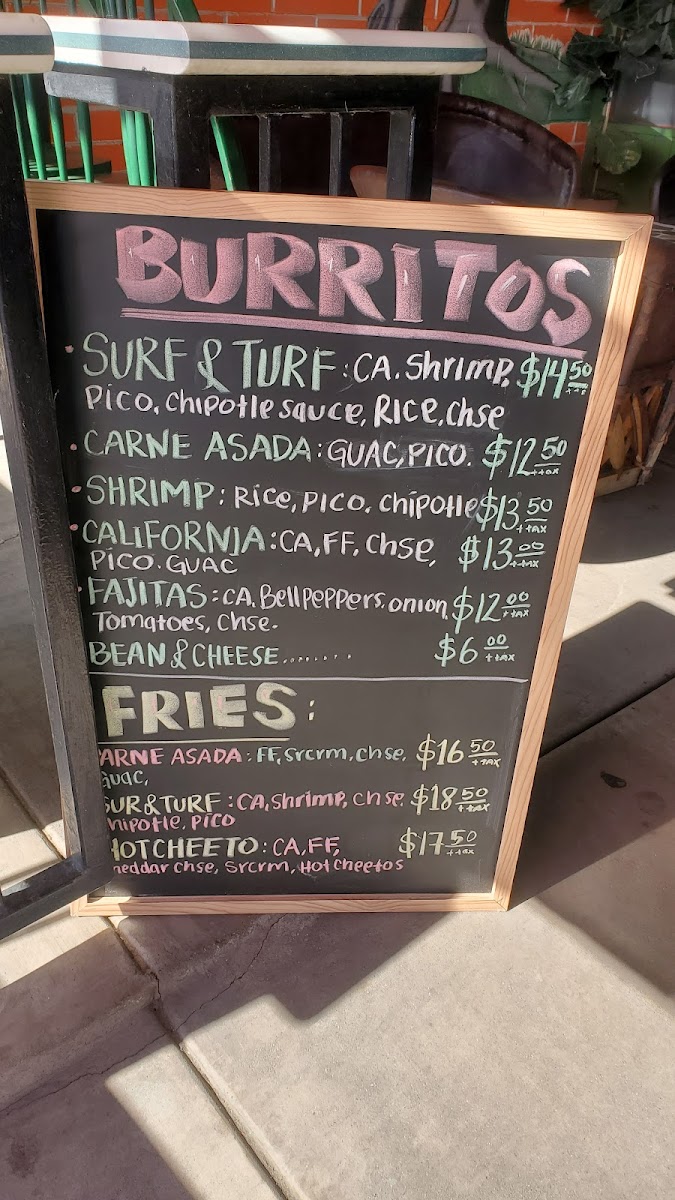 BURRITOS
SURF & TURF: CA. Shrimp, $14.50 ++a
Pico, Chipotle sauce, Rice, chse
CARNE ASADA: GUAC, PICO. $12.50 ++ax
SHRIMP: Rice, Pico, Chipotle $13.50 ++ax
CALIFORNIA: CA, FF, Chse, $13.00 ++ax
PICO. GUAC
FAJITAS: CA. Bellpeppers, onion, $12.00 ++ax
Tomatoes, Chse.
BEAN & CHEESE........ $6.00 ++ax
FRIES:
ARNE ASADA: FF, srcrm, chse, $16.50 +tax
Guac,
SUR & TURF: CA, Shrimp, Chse $18.50 ++ax
hipotle, PICO
HOT CHEETO: CA, FF, $17.50 ++ax
heddar chse, Srcrm, Hot Cheetos